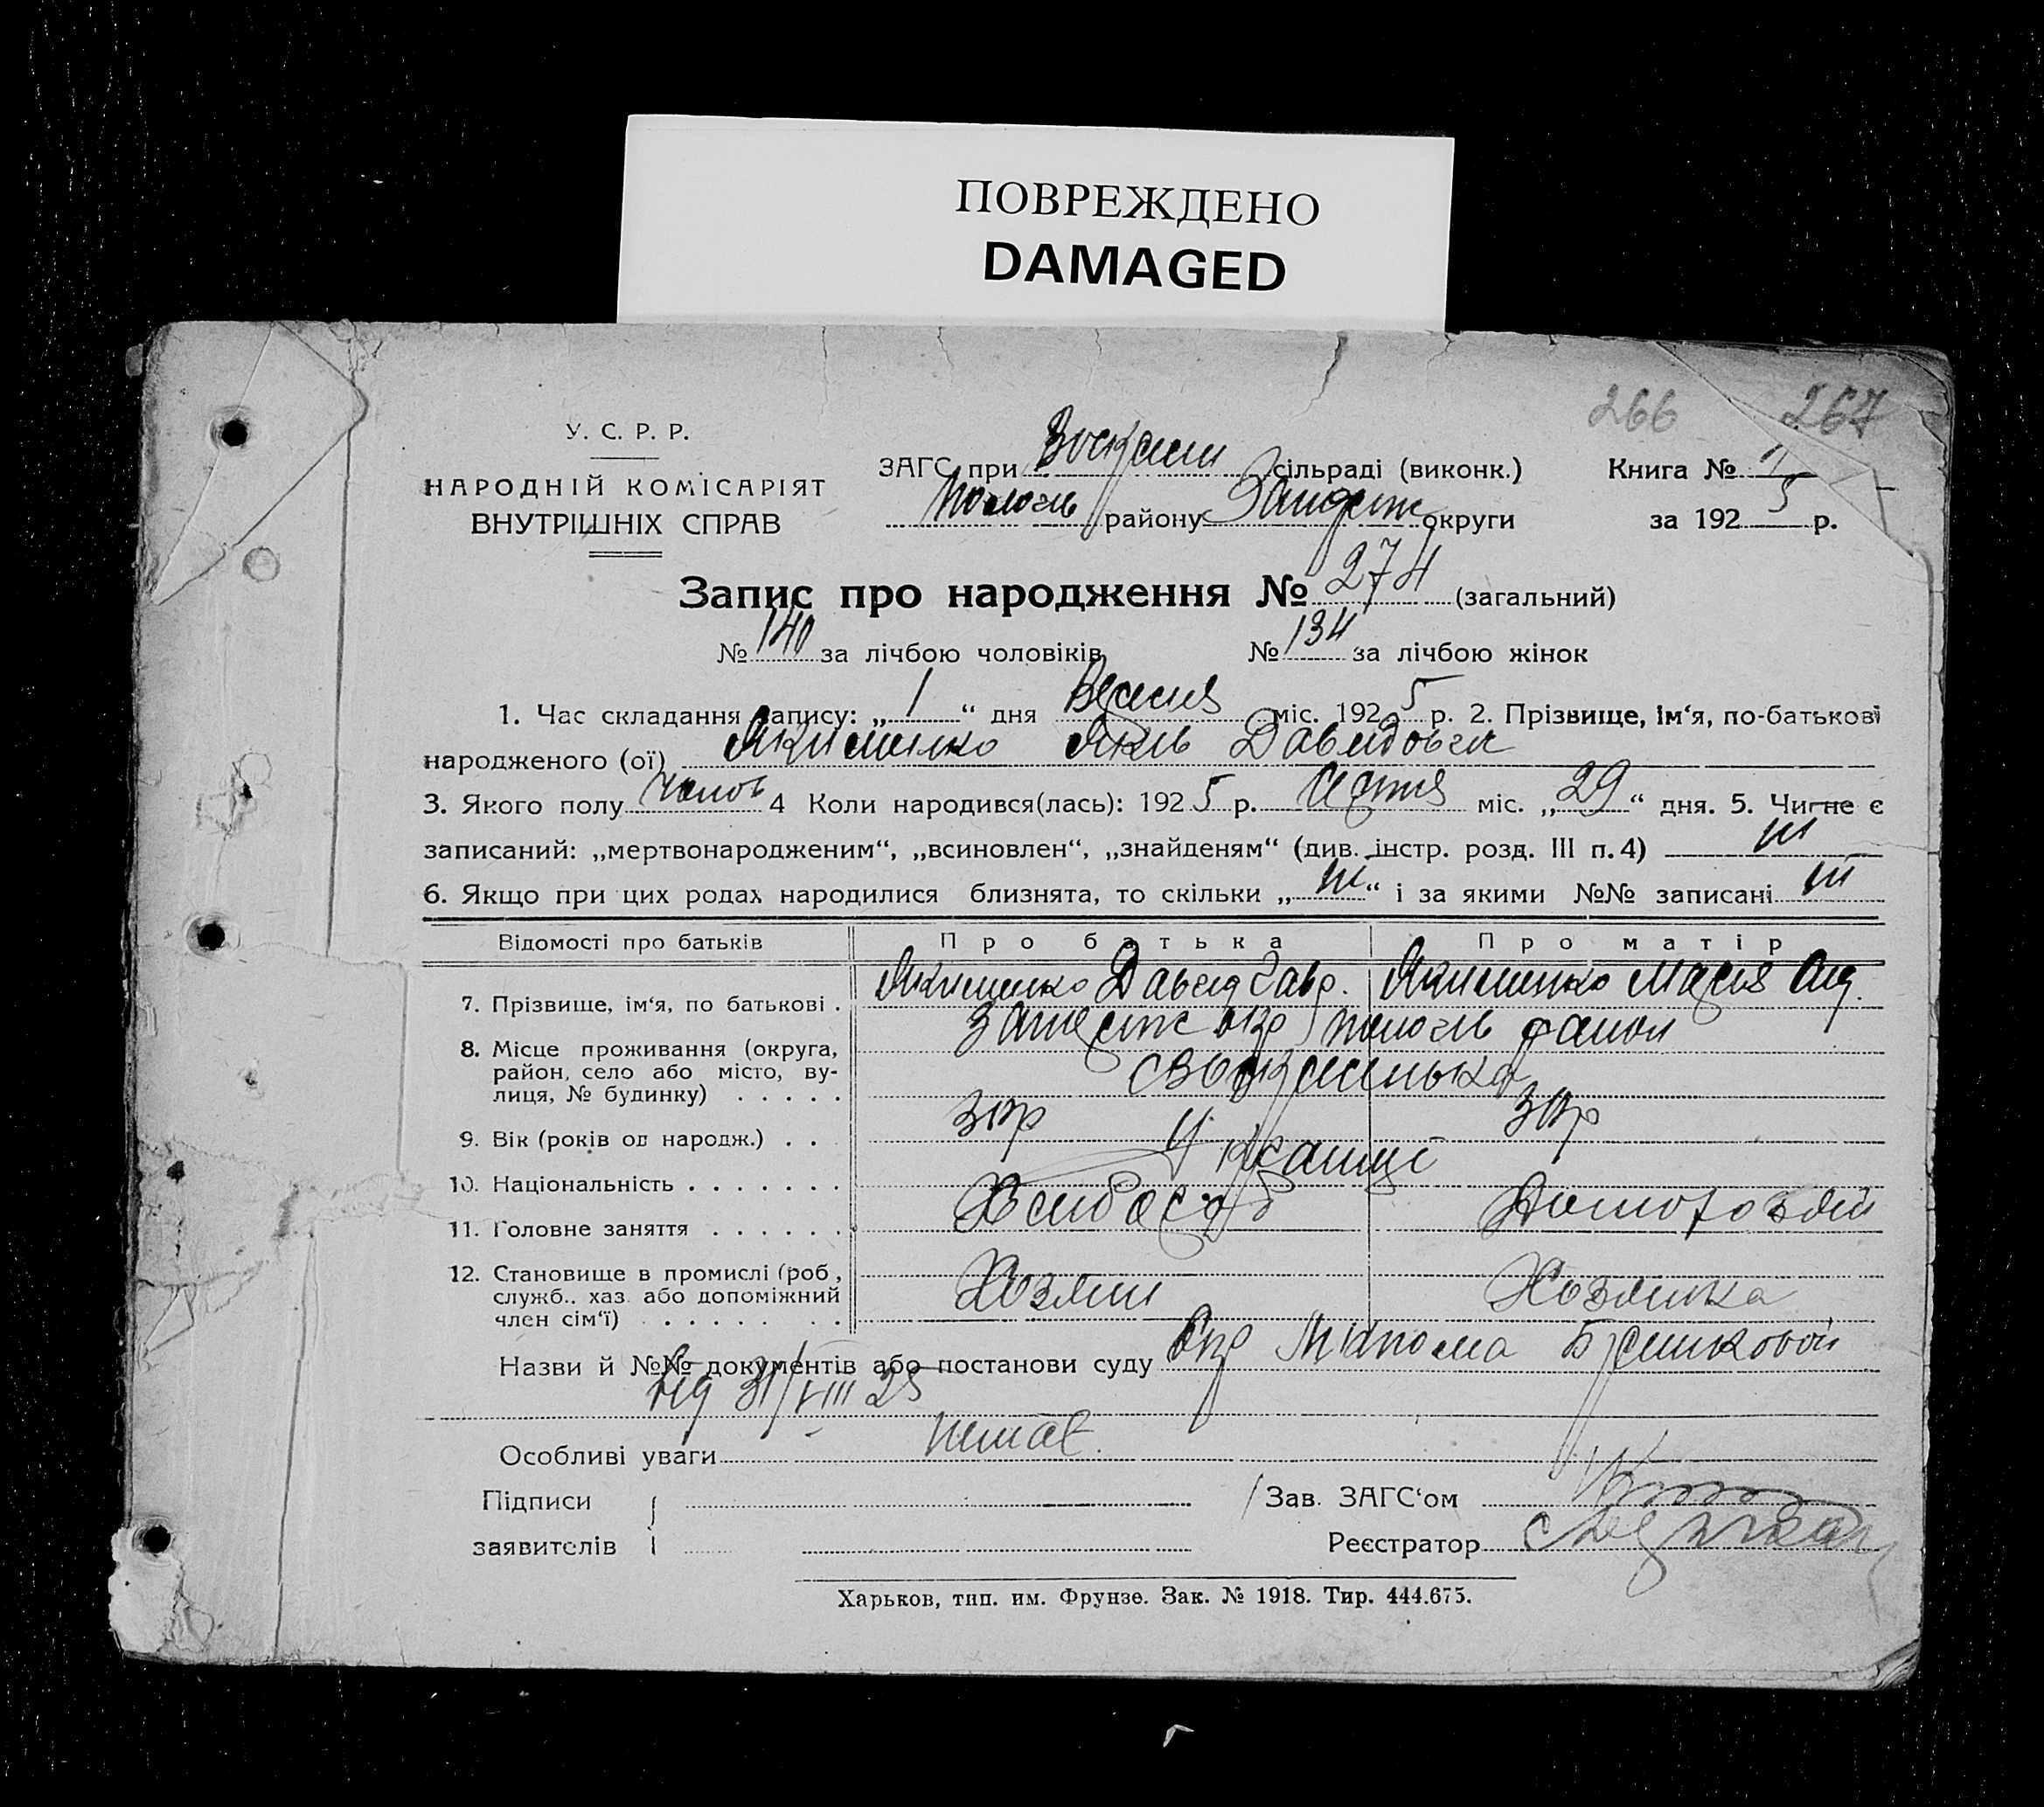 ПОВРЕЖДЕНО
DAMAGED
266 267
У. С. Р. Р.
НАРОДНІЙ КОМІСАРІЯТ
ВНУТРІШНІХ СПРАВ
ЗАГС при сільраді (виконк.) Книга № 1
району округи за 192 5 р.
Запис про народження № 274 (загальний)
№ 140 за лічбою чоловіків № 134 за лічбою жінок
1. Час складання запису: „ 1 “ дня Вересня міс. 192 5 р. 2. Прізвище, ім‘я, по-батькові
народженого (ої) Якименко Яків Давидович
3. Якого полу чолов 4 Коли народився(лась): 192 5 р. Серпня міс. „ 29 “ дня. 5. Чи не є
записаний: „мертвонародженим“, „всиновлен“, „знайденям“ (див. інстр. розд. III п. 4) ні
6. Якщо при цих родах народилися близнята, то скільки „ ні “ і за якими №№ записані ні
Відомості про батьків Про батька Про матір
7. Прізвище, ім‘я, по батькові . Якименко Давид Гавр. Якименко Мария
8. Місце проживання (округа,
район, село або місто, ву-
лиця, № будинку) . . . . .
9. Вік (років од народж.) . . 30р 30р
10. Національність . . . . . . . Українці
11. Головне заняття . . . . . . Хлібороб
12. Становище в промислі (роб,
служб., хаз. або допоміжний
член сім‘ї) . . . . . . . Хозяин Хозяйка
Назви й №№ документів або постанови суду
від 31/VIII 25
Особливі уваги немає.
Підписи
заявителів
Зав. ЗАГС‘ом
Реєстратор
Харьков, тип. им. Фрунзе. Зак. № 1918. Тир. 444.675.